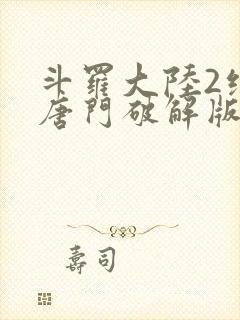 斗羅大陸2絕
唐門破解版
壽司